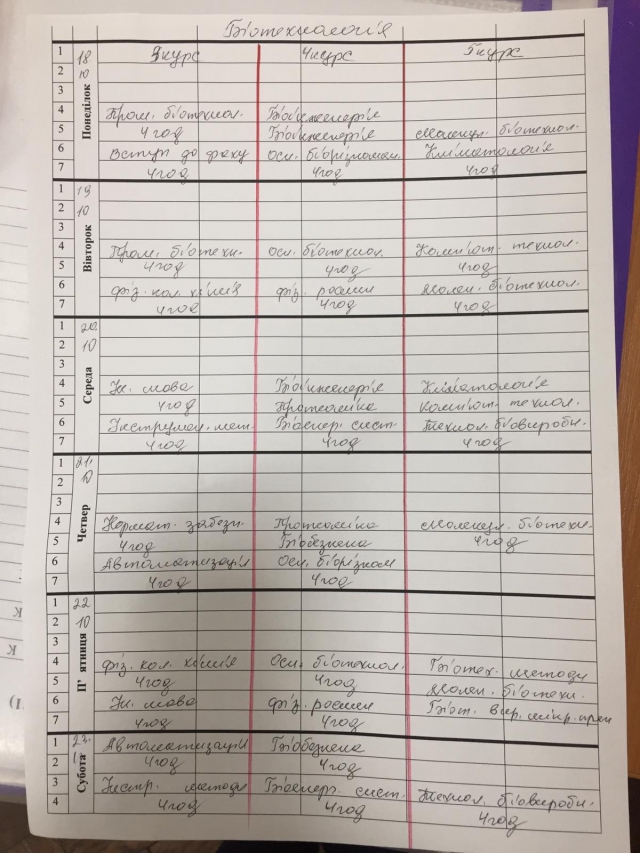 Біотехнологія
1 18 3 курс 4 курс 5 курс
2 10
3
4 Пром. біотехнол. Біоінженерія
5 4 год Біоінженерія Молекул. біотехнол.
6 Вступ до фаху Осн. біорізноман. Кліматологія
7 4 год 4 год 4 год
Понеділок
1 19
2 10
3
4 Пром. біотехн. Осн. біотехнол. Комп'ют. технол.
5 4 год 4 год 4 год
6 Фіз. кол. хімія Фіз. рослин Молек. біотехнол.
7 4 год 4 год 4 год
Вівторок
1 20
2 10
3
4 Ін. мова Біоінженерія Кліматологія
5 4 год Протеоміка Комп'ют. технол.
6 Інструмен. мет. Біоенер. сист. Технол. біовиробн.
7 4 год 4 год 4 год
Середа
1 21.
2 10
3
4 Нормат. забезп. Протеоміка Молекул. біотехн.
5 4 год Біобезпека 4 год
6 Автоматизація Осн. біорізном
7 4 год 4 год
Четвер
1 22
2 10
3
4 Фіз. кол. хімія Осн. біотехнол. Біотех. методи
5 4 год 4 год Молек. біотехн.
6 Ін. мова Фіз. рослин Біот. вир.
7 4 год 4 год
П'ятниця
1 23. Автоматизація Біобезпека
2 4 год 4 год
3 Інстр. методи Біоенерг. сист. Технол. біовиробн.
4 4 год 4 год 4 год
Субота
К
К